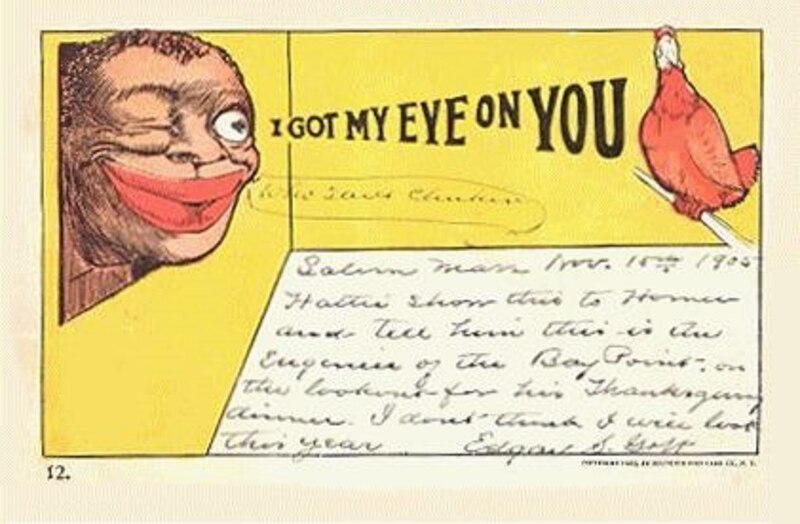 I GOT MY EYE ON YOU
Who Said Chicken
Salem Mass Nov. 15th 1905
Hattie show this to Homer
and tell him this is the
Engineer of the Bay Point, on
the lookout for his Thanksgiving
dinner. I dont think I will look
this year Edgar S. Goff
12.